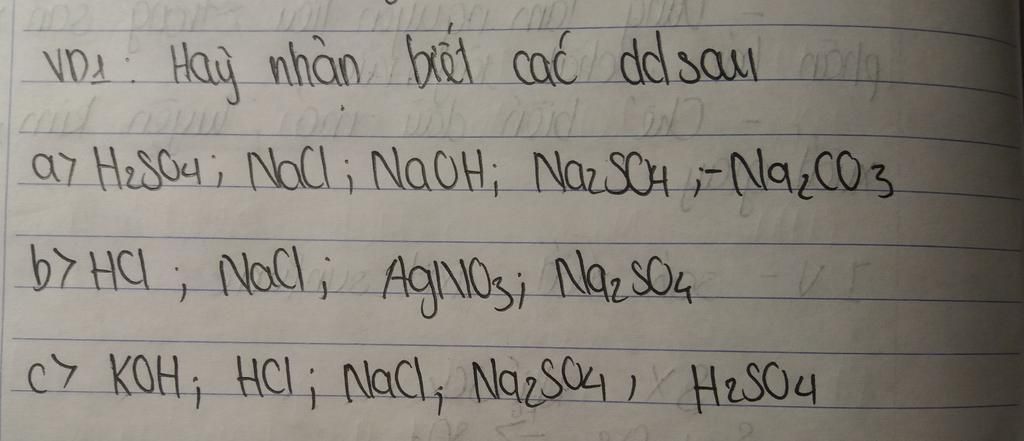 VD1: Hãy nhận biết các dd sau
a> H2SO4; NaCl; NaOH; Na2SO4; -Na2CO3
b> HCl; NaCl; AgNO3; Na2SO4
c> KOH; HCl; NaCl; Na2SO4, H2SO4